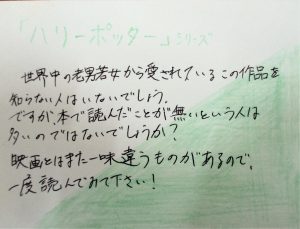 「ハリーポッター」シリーズ
世界中の老男若女から愛されているこの作品を
知らない人はいないでしょう。
ですが、本で読んだことが無いという人は
多いのではないでしょうか？
映画とはまた一味違うものがあるので、
一度読んでみて下さい！